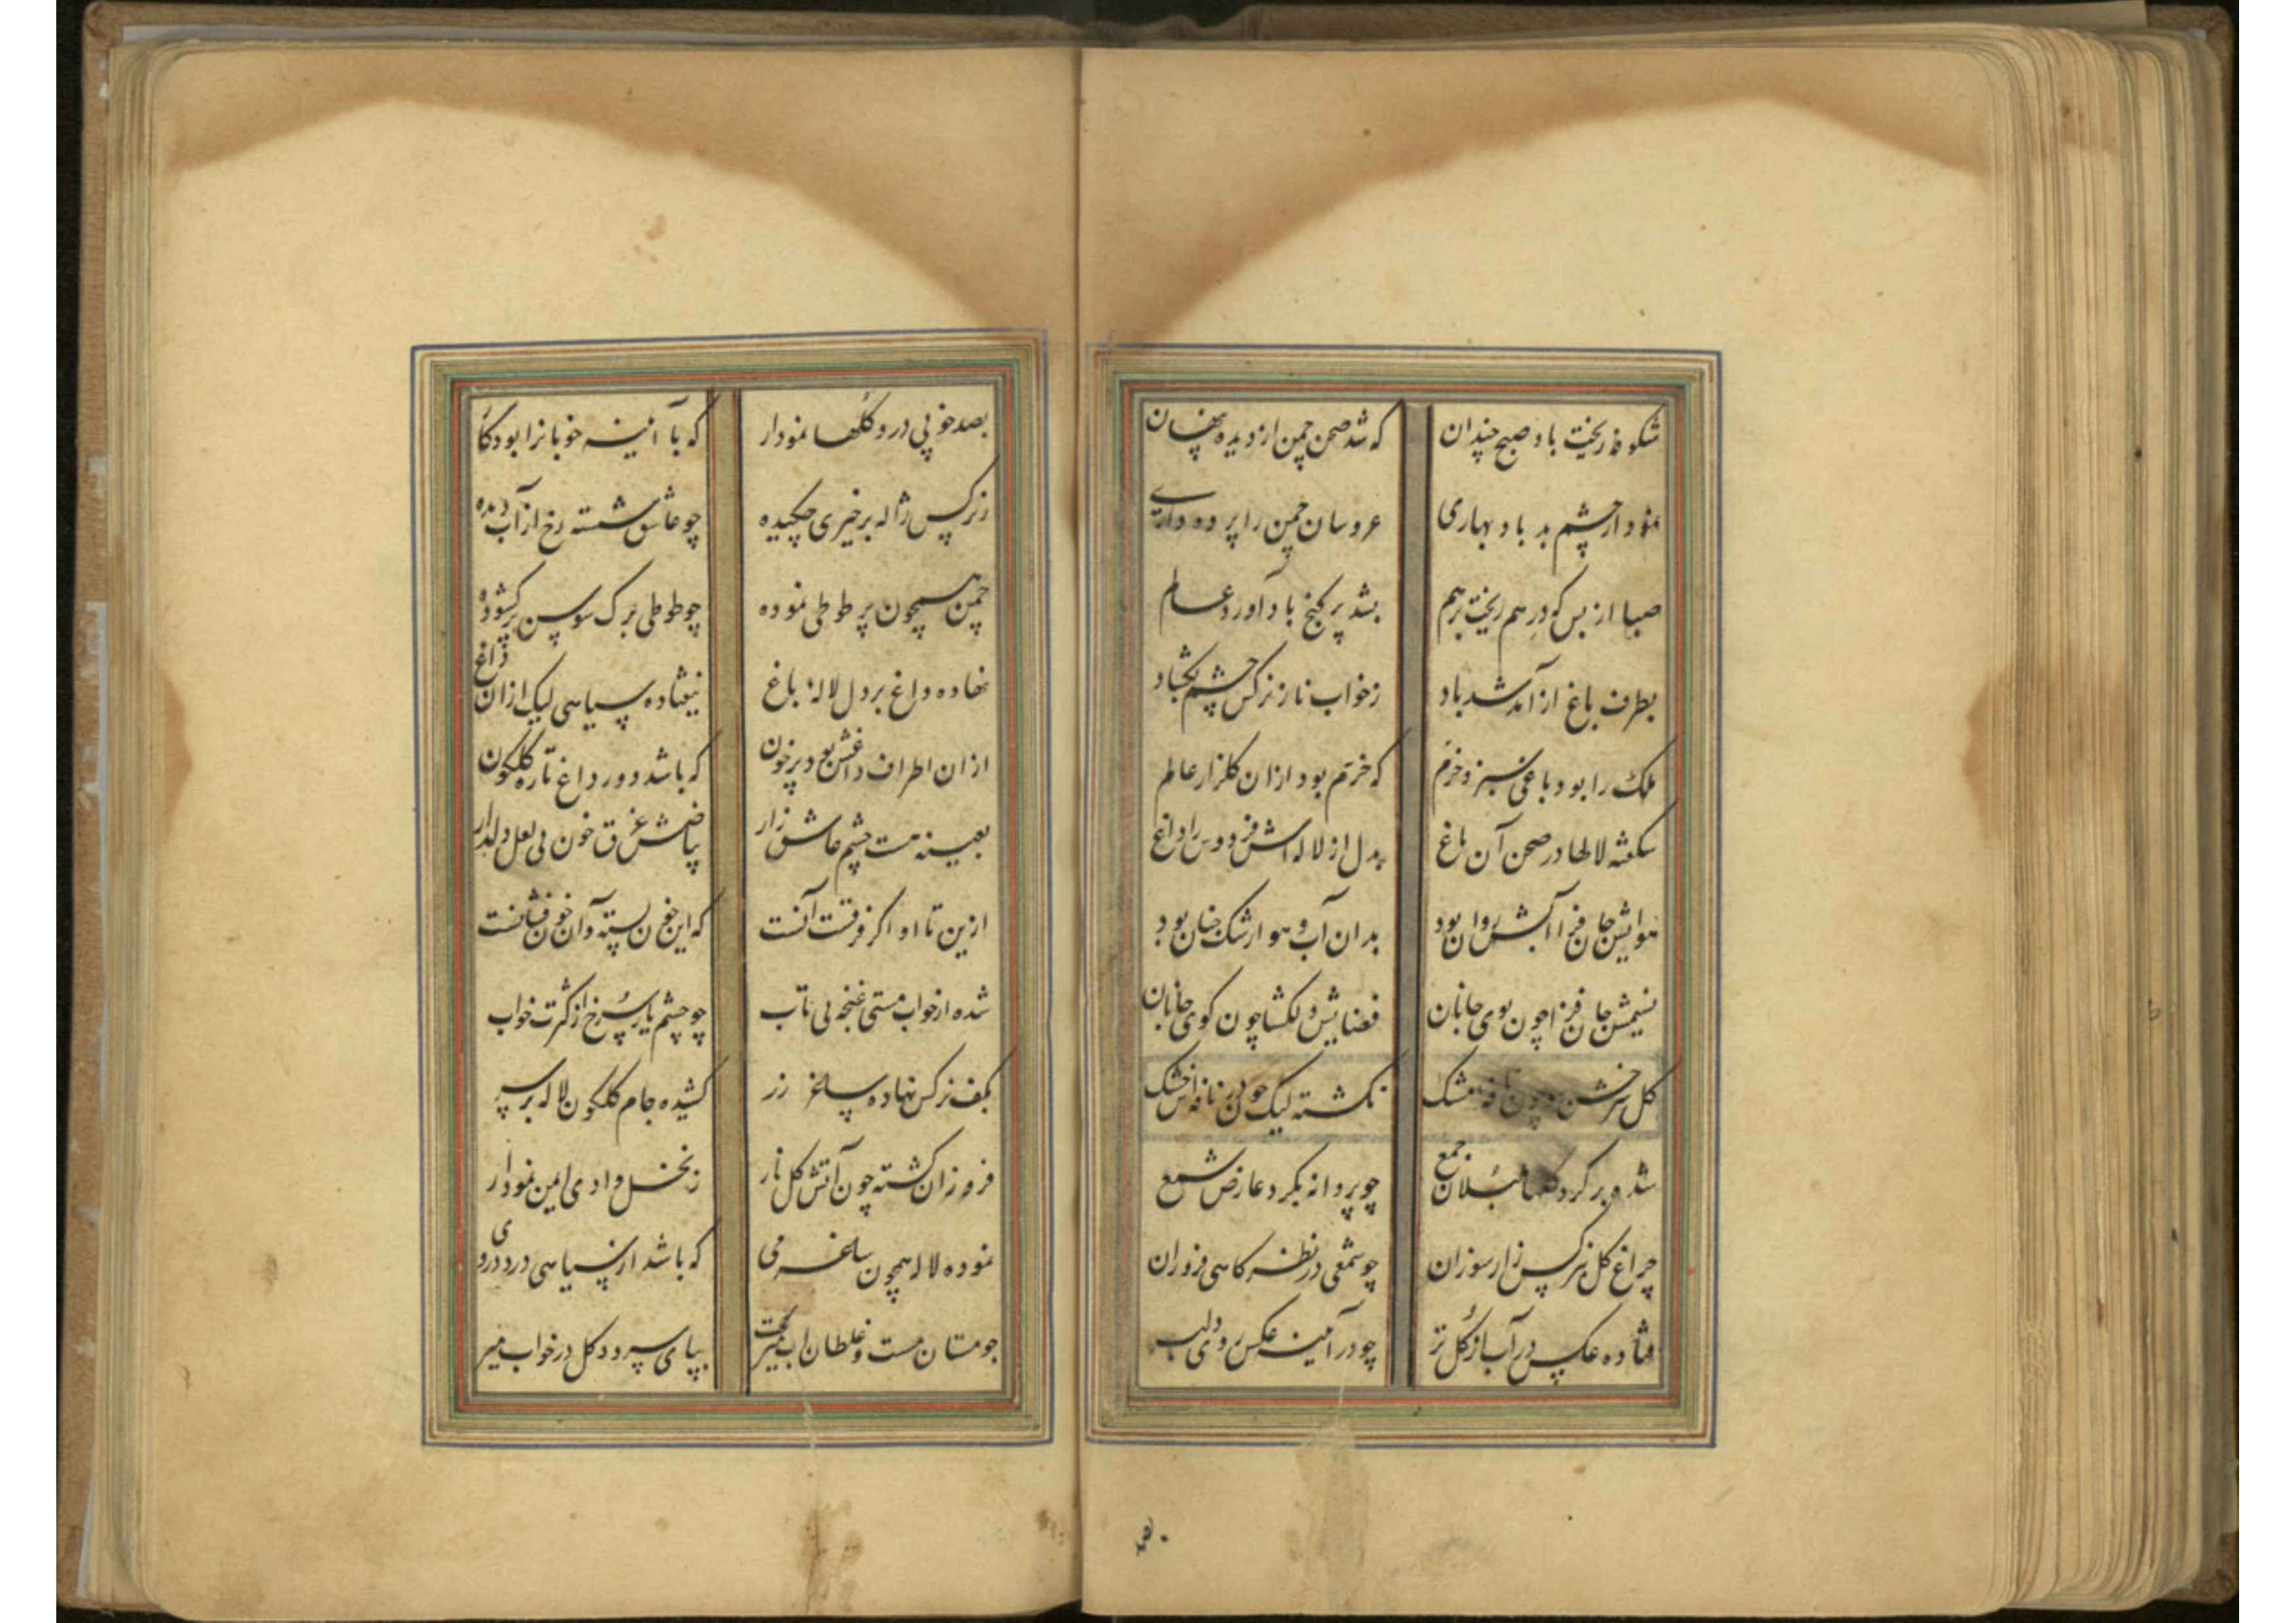 شکوفه ریخت باد صبح چندان که شد صحن چمن از دیده پنهان
نمود از چشم بد باد بهاری عروسان چمن را پرده داری
صبا از بس که درهم ریخت برهم بشد پر گنج باد آورد عالم
بطرف باغ از آمد شد باد ز خواب ناز نرکس چشم بکشاد
ملک را بود باغی سبز و خرم که خرم بود ازان کلزار عالم
شکفته لالها در صحن آن باغ بدل از لاله اش فردوس را داغ
هوایش جان فزا آبش روان بود بدان آب و هوا رشک جنان بود
نسیمش جان فزا چون بوی جانان فضایش دلکشا چون کوی جانان
کل سرخش چون نافه مشک نکشته لیک خون در نافه اش خشک
شده بر کرد کلها بلبلان جمع چو پروانه بکرد عارض شمع
چراغ کل بنرکس زار سوزان چو شمعی در نظر کاهی فروران
فتاده عکس در آب از کل تر چو در آینه عکس روی دلبر
بصد خوبی درو کلها نمودار که با آئینه خوبانرا بود کار
ز نرکس ژاله بر خیری چکیده چو عاشق شسته رخ از آب دیده
چمن همچون پر طوطی نموده چو طوطی برک سوسن پر کشوده
نهاده داغ بر دل لالهٔ باغ نیفتاده سیاهی لیک ازان داغ
ازان اطراف داغش بود پر خون که باشد دور داغ تازه کلکون
بعینه هست چشم عاشق زار بیاضش غرق خون بی لعل دلدار
ازین تا او اکر فرقست آنست که این خون بسته و آن خون فشانست
شده از خواب مستی غنچه بی تاب چو چشم یار سرخ از کثرت خواب
بکف نرکس نهاده ساغر زر کشیده جام کلکون لاله بر سر
فروزان کشته چون آتش کل نار ز نخل وادی ایمن نمودار
نموده لاله همچون ساغر می که باشد از سیاهی درد در وی
چو مستان مست و غلطان آب میرفت بپای سرو و کل در خواب میرفت